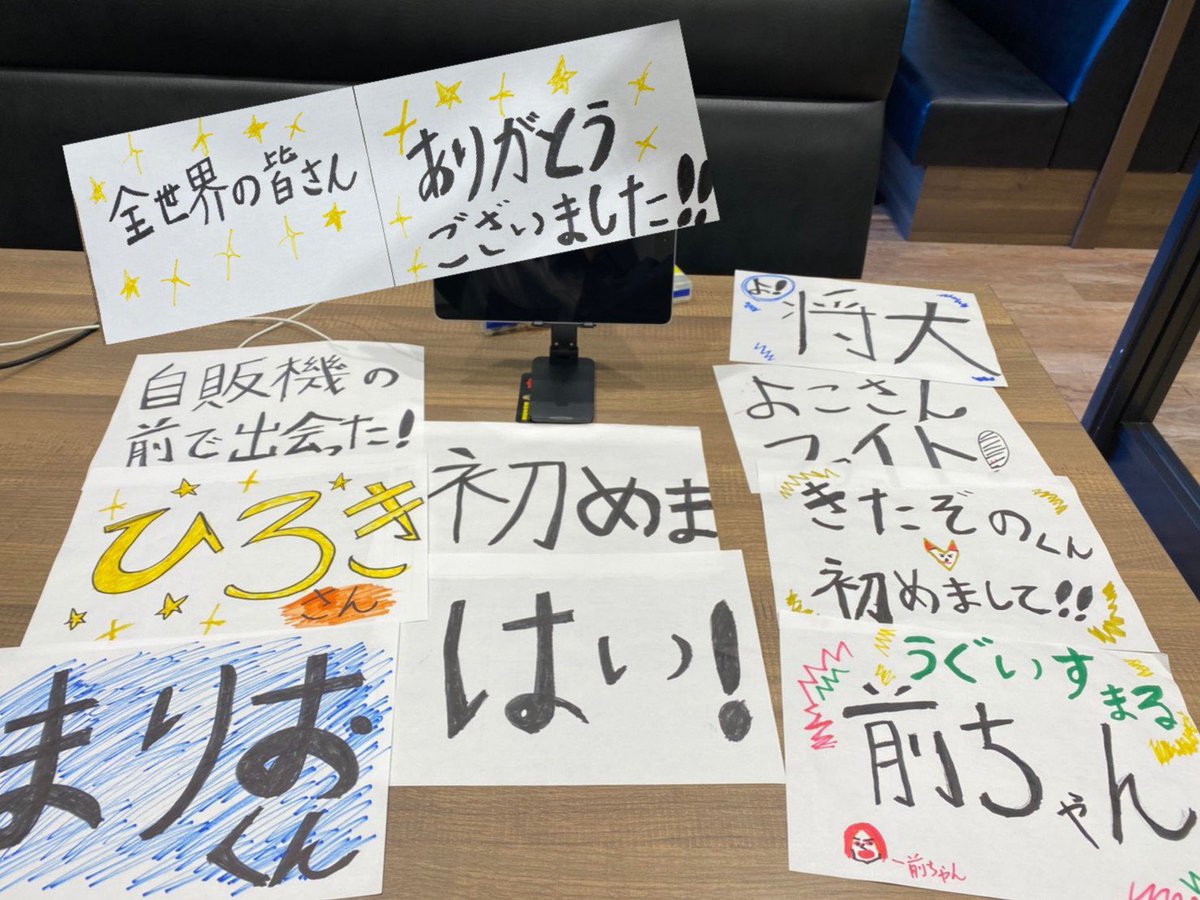 全世界の皆さん
ありがとう
ございました!!
自販機の
前で出会った!
ひろき
さん
まりお
くん
初めま
はい!
よ!
将大
よこさん
ファイト
きたぞのくん
初めまして!!
うぐいすまる
前ちゃん
前ちゃん